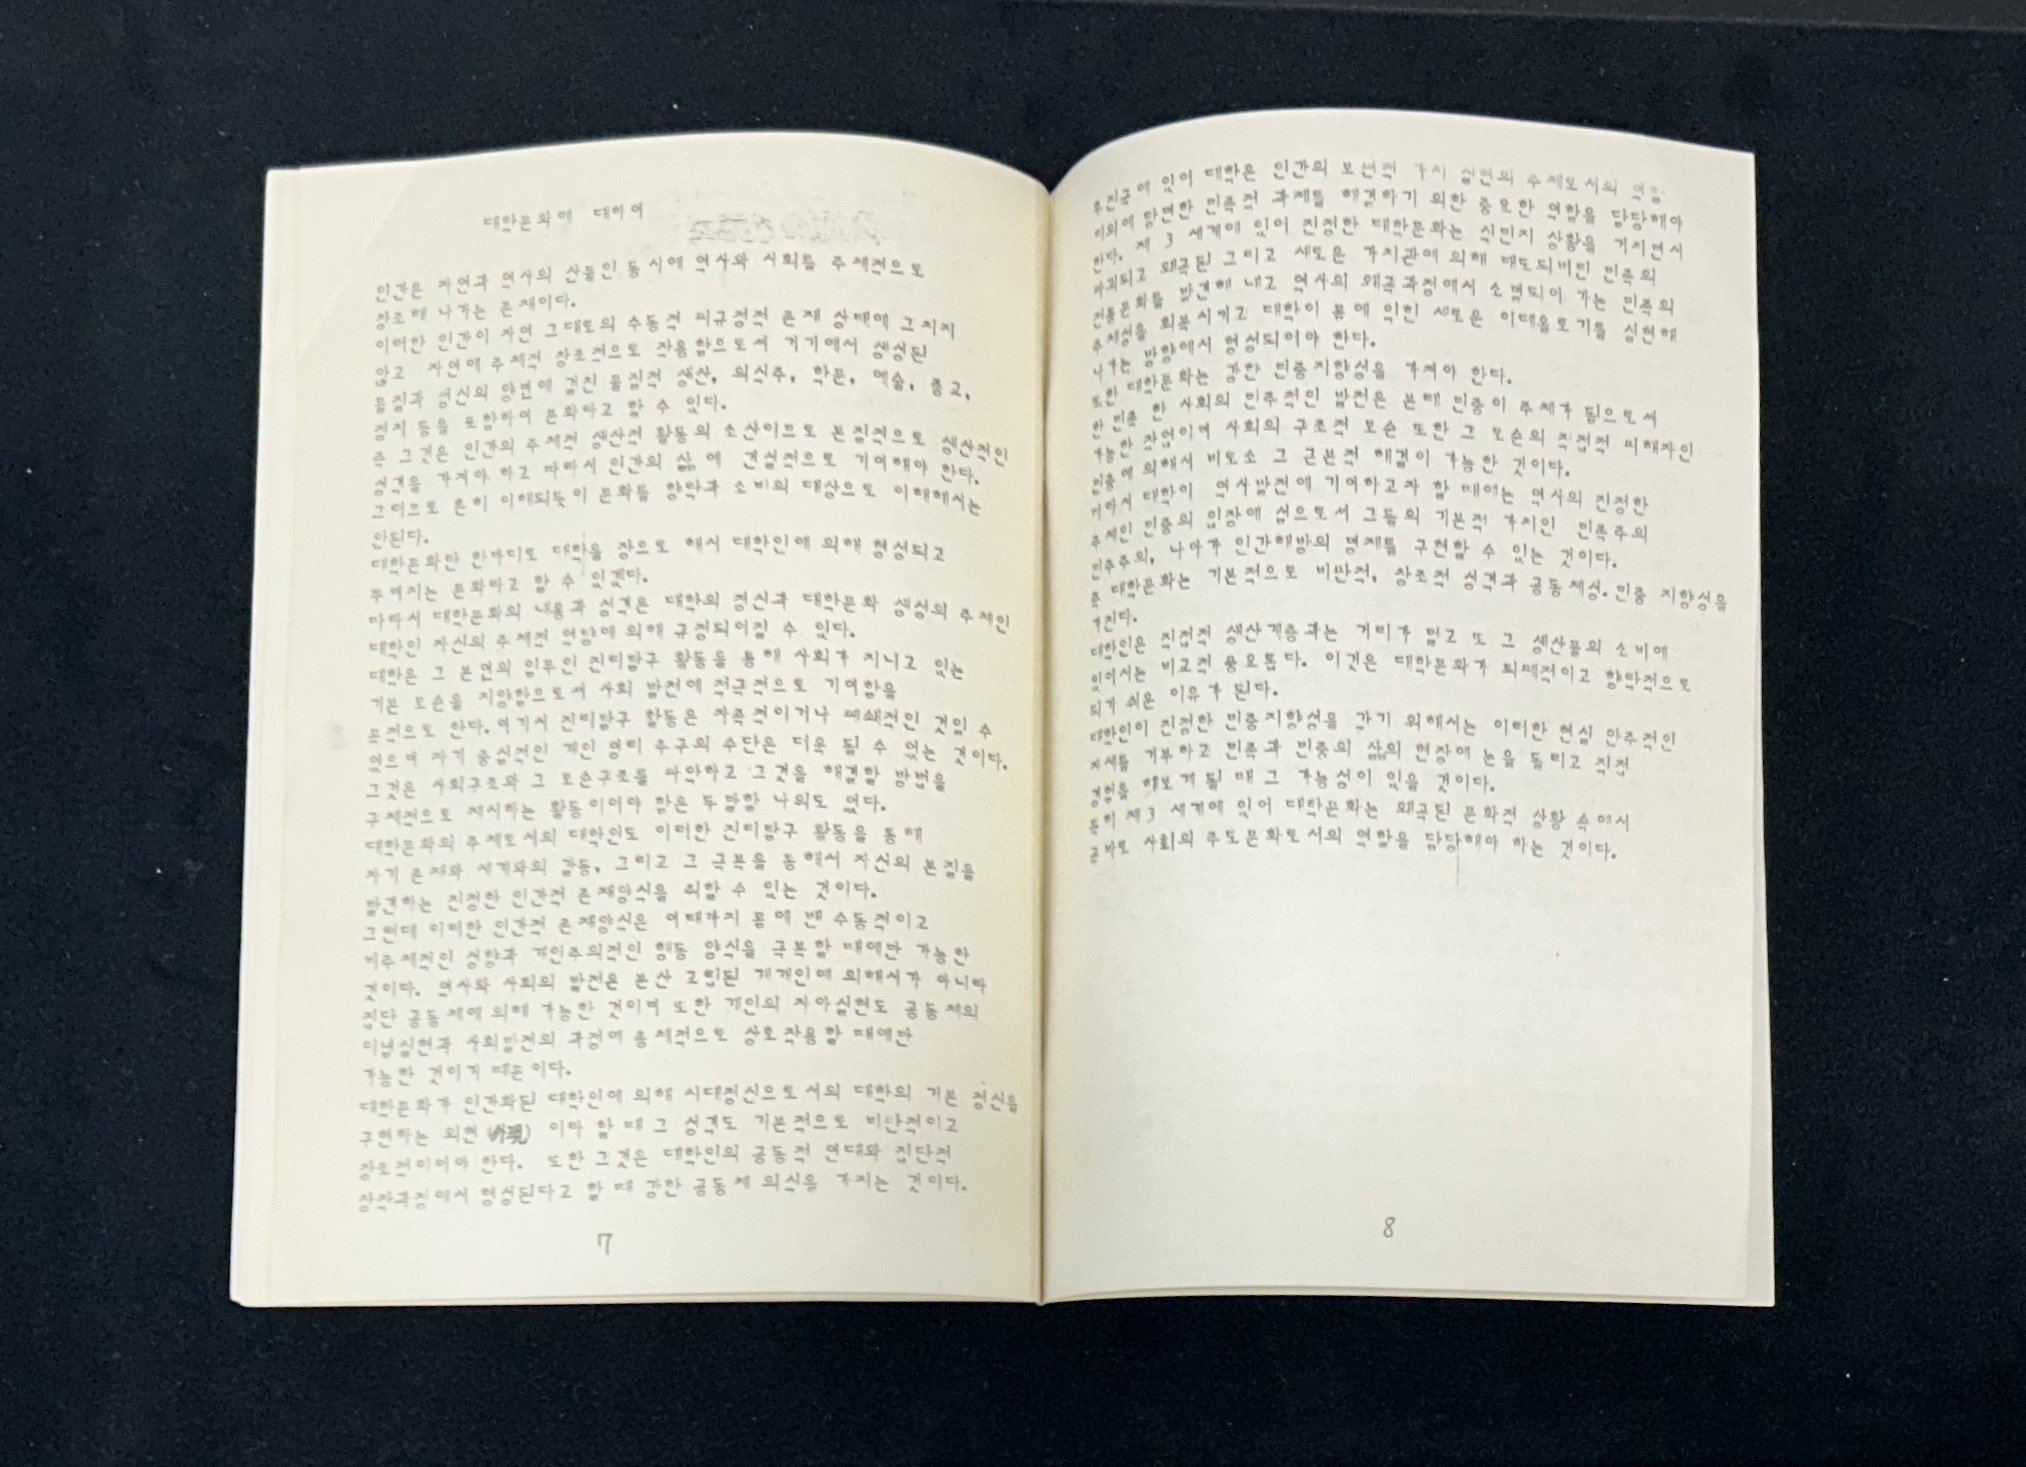 대학문화에 대하여
인간은 자연과 역사의 산물인 동시에 역사와 사회를 주체적으로
창조해 나가는 존재이다.
이러한 인간이 자연 그대로의 수동적 피규정적 존재 상태에 그치지
않고 자연에 주체적 창조적으로 작용함으로써 거기에서 생성된
물질과 정신의 양면에 걸친 물질적 생산, 의식주, 학문, 예술, 종교,
정치 등을 포함하여 문화라고 할 수 있다.
즉 그것은 인간의 주체적 생산적 활동의 소산이므로 본질적으로 생산적인
성격을 가져야 하고 따라서 인간의 삶에 건설적으로 기여해야 한다.
그러므로 흔히 이해되듯이 문화를 향락과 소비의 대상으로 이해해서는
안된다.
대학문화란 한마디로 대학을 장으로 해서 대학인에 의해 형성되고
누려지는 문화라고 할 수 있겠다.
따라서 대학문화의 내용과 성격은 대학의 정신과 대학문화 생성의 주체인
대학인 자신의 주체적 역량에 의해 규정되어질 수 있다.
대학은 그 본연의 임무인 진리탐구 활동을 통해 사회가 지니고 있는
기본 모순을 지양함으로써 사회 발전에 적극적으로 기여함을
목적으로 한다. 여기서 진리탐구 활동은 자족적이거나 폐쇄적인 것일 수
없으며 자기 중심적인 개인 영리 추구의 수단은 더욱 될 수 없는 것이다.
그것은 사회구조와 그 모순구조를 파악하고 그것을 해결할 방법을
구체적으로 제시하는 활동이어야 함은 두말할 나위도 없다.
대학문화의 주체로서의 대학인도 이러한 진리탐구 활동을 통해
자기 존재와 세계와의 갈등, 그리고 그 극복을 통해서 자신의 본질을
발견하는 진정한 인간적 존재양식을 취할 수 있는 것이다.
그런데 이러한 인간적 존재양식은 여태까지 몸에 밴 수동적이고
비주체적인 성향과 개인주의적인 행동 양식을 극복할 때에만 가능한
것이다. 역사와 사회의 발전은 분산 고립된 개개인에 의해서가 아니라
집단 공동체에 의해 가능한 것이며 또한 개인의 자아실현도 공동체의
이념실현과 사회발전의 과정에 총체적으로 상호작용할 때에만
가능한 것이기 때문이다.
대학문화가 인간화된 대학인에 의해 시대정신으로서의 대학의 기본 정신을
구현하는 외현(外現)이라 할 때 그 성격도 기본적으로 비판적이고
창조적이어야 한다. 또한 그것은 대학인의 공동적 연대와 집단적
창작과정에서 형성된다고 할 때 강한 공동체 의식을 가지는 것이다.
7
후진국에 있어 대학은 인간의 보편적 가치 실현의 주체로서의 역할
이외에 당면한 민족적 과제를 해결하기 위한 중요한 역할을 담당해야
한다. 제 3 세계에 있어 진정한 대학문화는 식민지 상황을 거치면서
파괴되고 왜곡된 그리고 새로운 가치관에 의해 매도되버린 민족의
전통문화를 발견해 내고 역사의 왜곡과정에서 소멸되어 가는 민족의
주체성을 회복시키고 대학이 몸에 익힌 새로운 이데올로기를 실현해
나가는 방향에서 형성되어야 한다.
또한 대학문화는 강한 민중지향성을 가져야 한다.
한 민족 한 사회의 민주적인 발전은 본래 민중이 주체가 됨으로써
가능한 작업이며 사회의 구조적 모순 또한 그 모순의 직접적 피해자인
민중에 의해서 비로소 그 근본적 해결이 가능한 것이다.
따라서 대학이 역사발전에 기여하고자 할 때에는 역사의 진정한
주체인 민중의 입장에 섬으로서 그들의 기본적 가치인 민족주의
민주주의, 나아가 인간해방의 명제를 구현할 수 있는 것이다.
즉 대학문화는 기본적으로 비판적, 창조적 성격과 공동체성. 민중 지향성을
가진다.
대학인은 직접적 생산계층과는 거리가 멀고 또 그 생산물의 소비에
있어서는 비교적 풍요롭다. 이것은 대학문화가 퇴폐적이고 향락적으로
되기 쉬운 이유가 된다.
대학인이 진정한 민중지향성을 갖기 위해서는 이러한 현실 안주적인
자세를 거부하고 민족과 민중의 삶의 현장에 눈을 돌리고 직접
경험을 해보게 될 때 그 가능성이 있을 것이다.
특히 제3 세계에 있어 대학문화는 왜곡된 문화적 상황 속에서
곧바로 사회의 주도문화로서의 역할을 담당해야 하는 것이다.
8